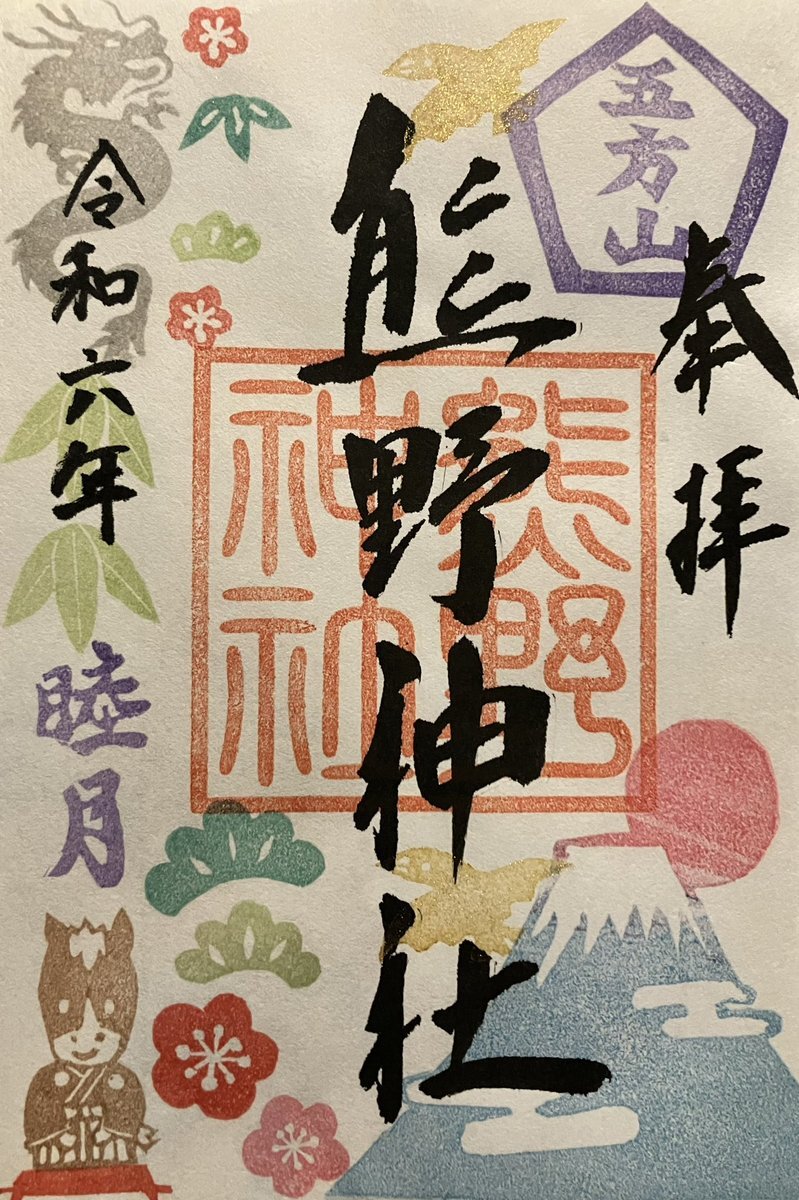 奉拝
五方山
熊野神社
熊野
神社
令和六年
睦月